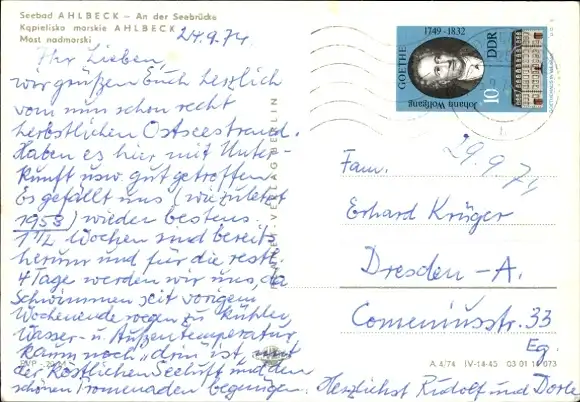 Seebad AHLBECK – An der Seebrücke
Kąpielisko morskie AHLBECK
Most nadmorski
24.9.74
Ihr Lieben,
wir grüßen Euch herzlich
vom nun schon recht
herbstlichen Ostseestrand.
Haben es hier mit Unter-
kunft usw. gut getroffen.
Es gefällt uns (wie zuletzt
1958) wieder bestens.
1 1/2 Wochen sind bereits
herum und für die restl.
4 Tage werden wir uns, da
Schwimmen seit vorigem
Wochenende wegen zu kühler
Wasser- u. Außentemperatur
kaum noch „drin" ist, mit
der köstlichen Seeluft und den
schönen Promenaden begnügen.
Herzlichst Rudolf und Dorle
VERLAG BERLIN
GOETHE
1749-1832
Johann Wolfgang
DDR
10
29.9.74
Fam.
Erhard Krüger
Dresden-A.
Comeniusstr. 33
Eg.
A 4/74 IV-14-45 03 01 11 073